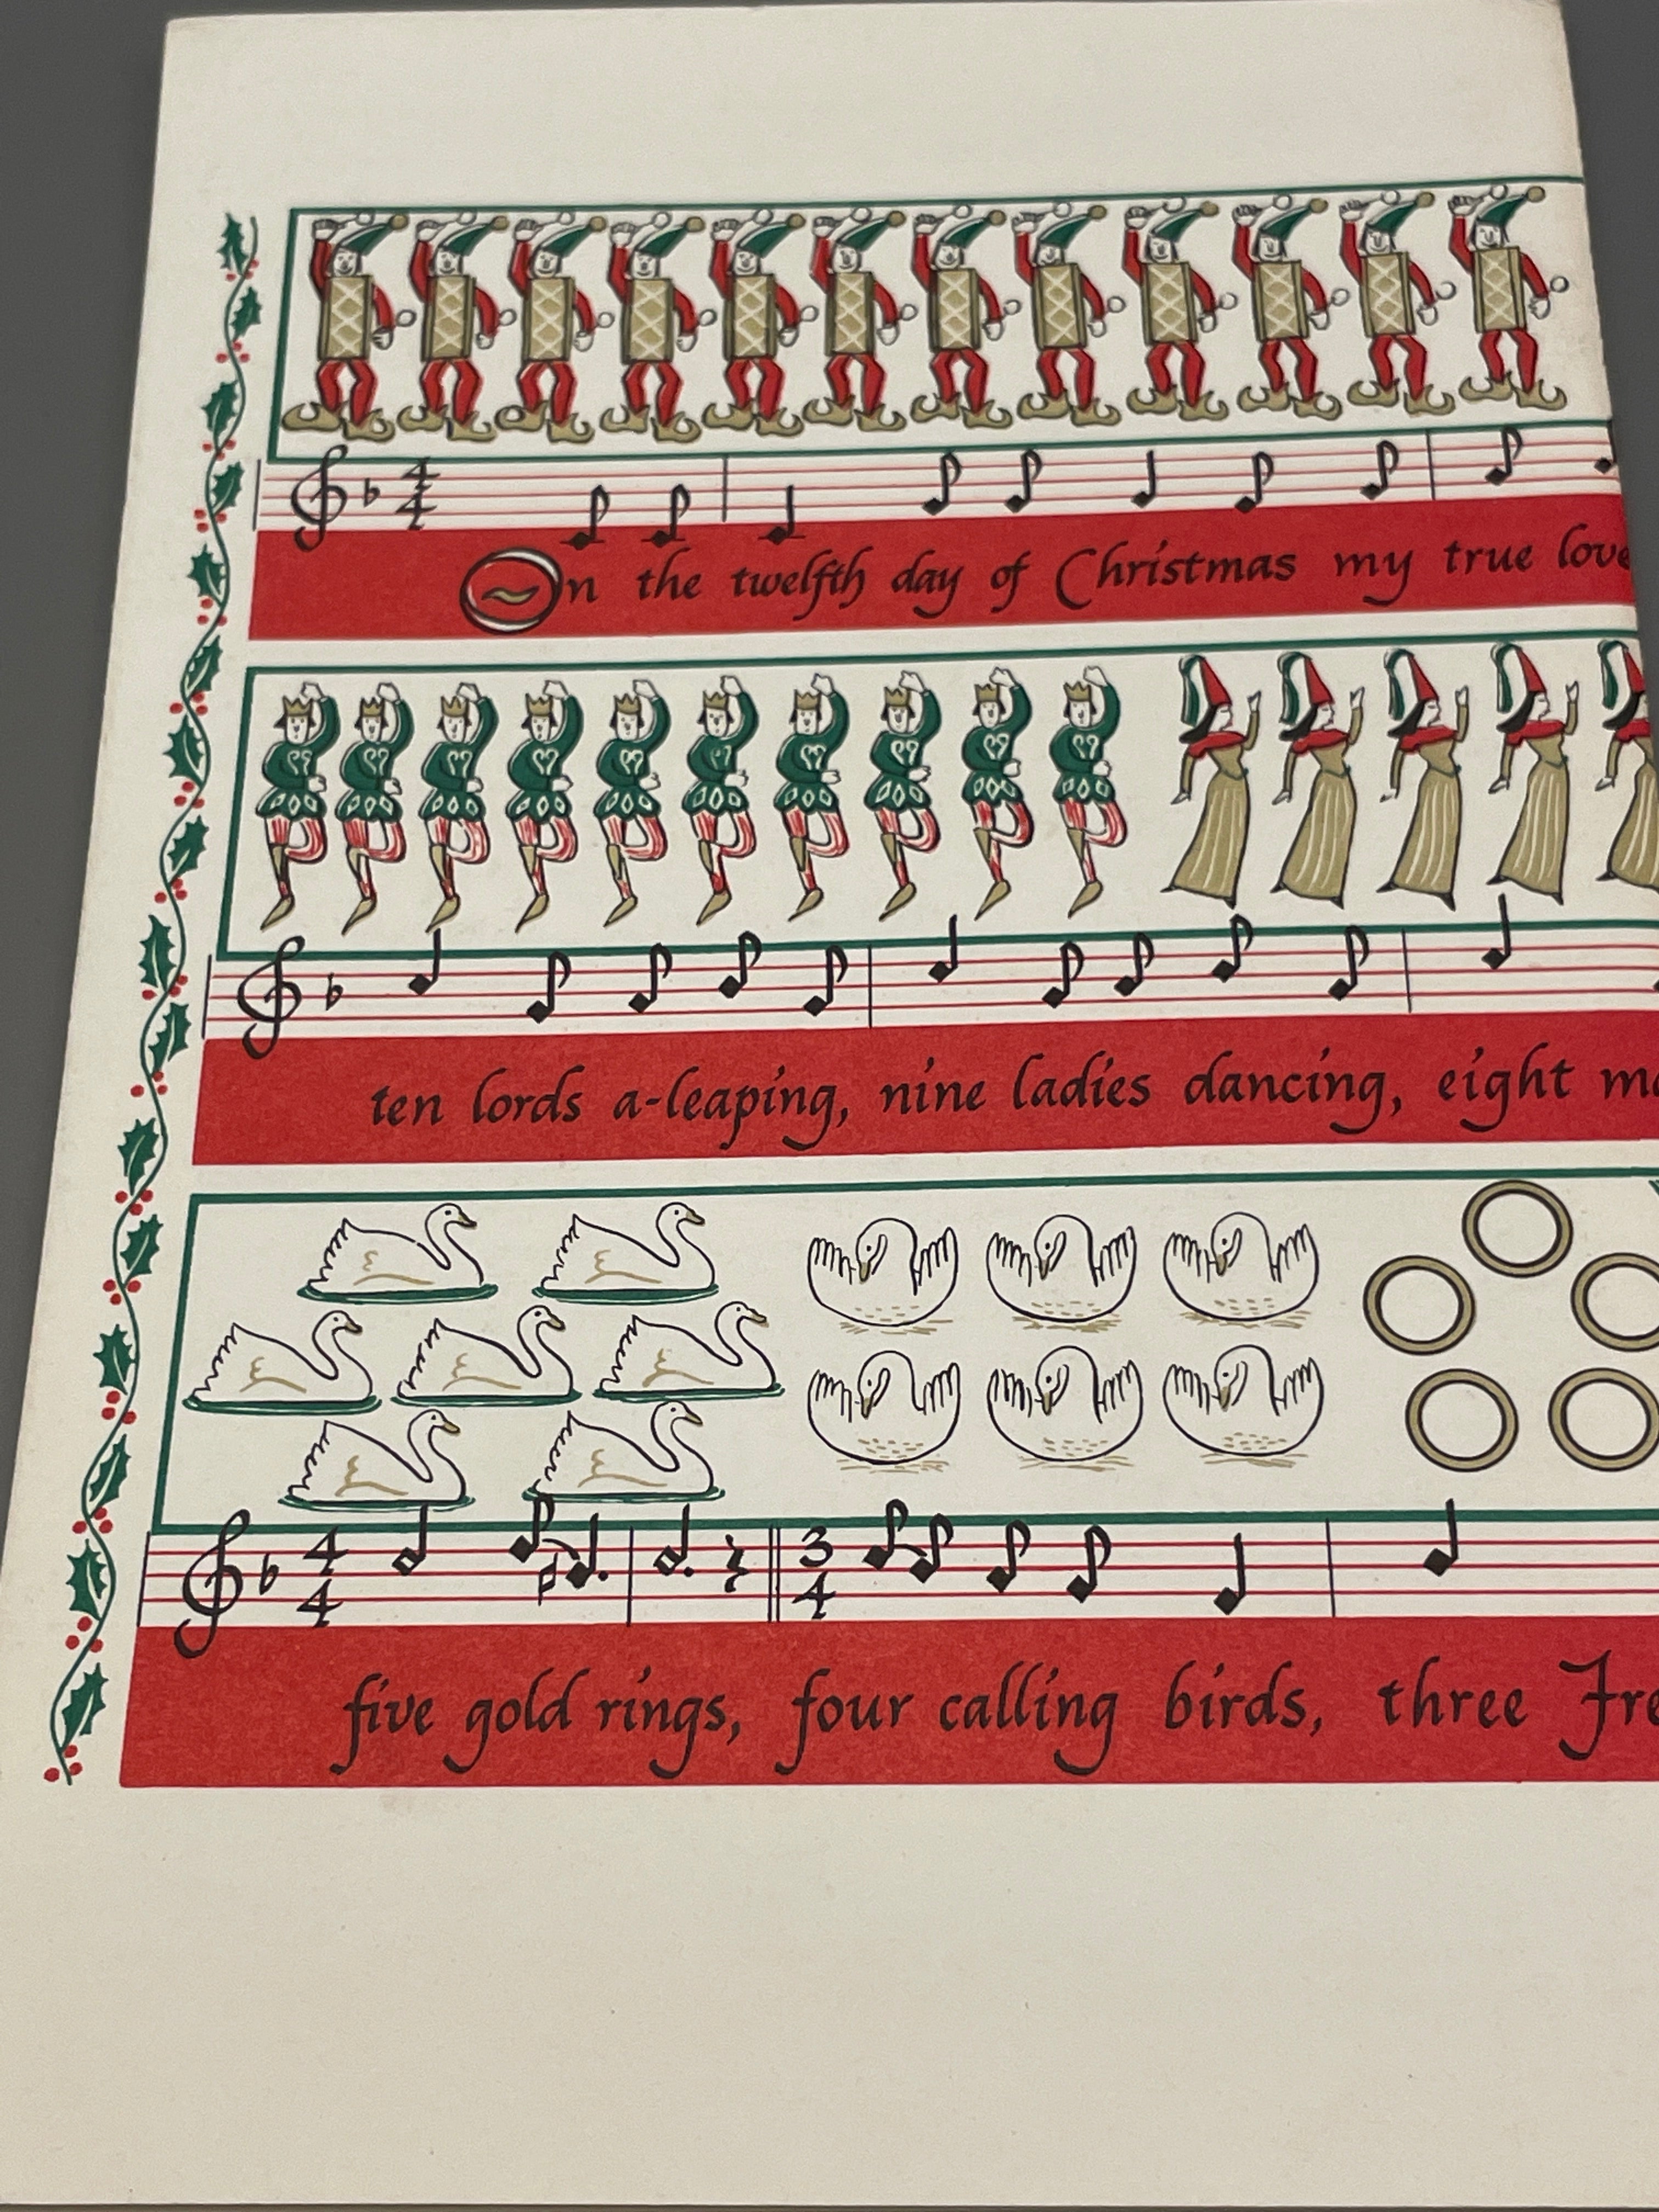 4
4
On the twelfth day of Christmas my true love
ten lords a-leaping, nine ladies dancing, eight
4
4
3
4
five gold rings, four calling birds, three